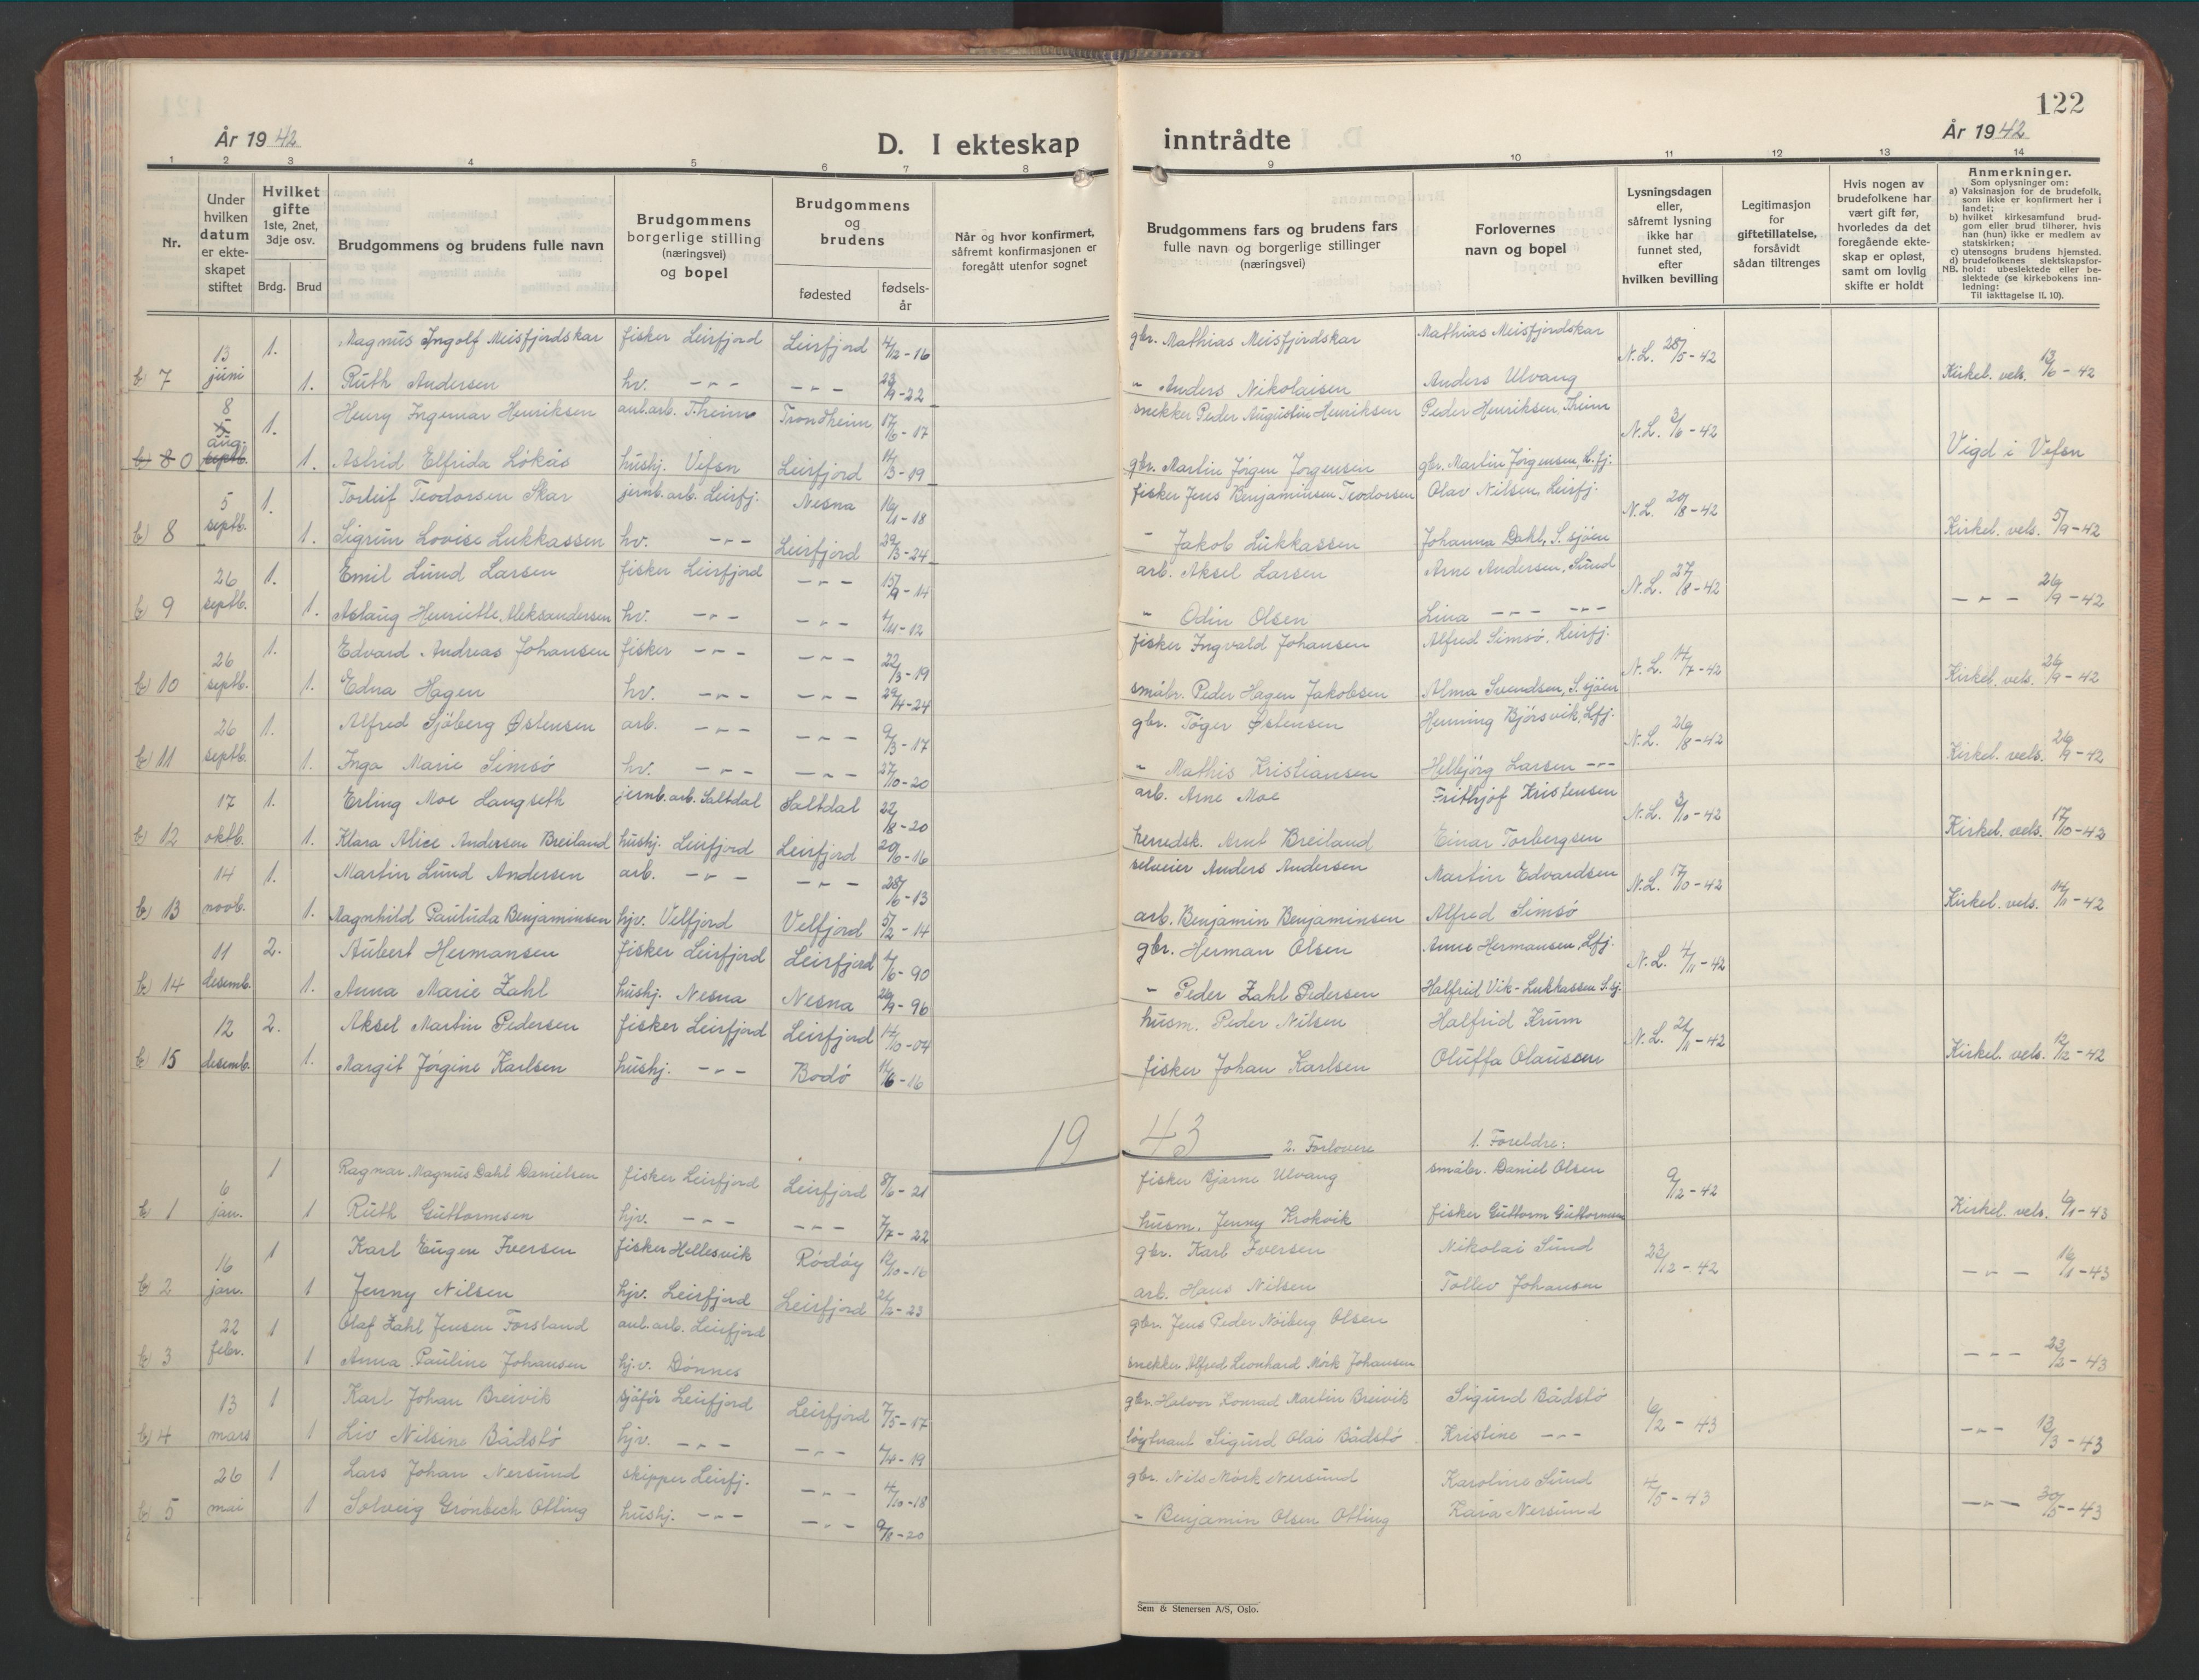 122
År 1942
D. I ekteskap inntrådte
År 1942
1 2 3 4 5 6 7 8 9 10 11 12 13 14
Nr.
Under hvilken datum er ekte-skapet stiftet
Hvilket gifte 1ste, 2net, 3dje osv.
Brdg. Brud
Brudgommens og brudens fulle navn
Brudgommens borgerlige stilling (næringsvei) og bopel
Brudgommens og brudens
fødested
fødsels-år
Når og hvor konfirmert, såfremt konfirmasjonen er foregått utenfor sognet
Brudgommens fars og brudens fars fulle navn og borgerlige stillinger (næringsvei)
Forlovernes navn og bopel
Lysningsdagen eller, såfremt lysning ikke har funnet sted, efter hvilken bevilling
Legitimasjon for giftetillatelse, forsåvidt sådan tiltrenges
Hvis nogen av brudefolkene har vært gift før, hvorledes da det foregående ekte-skap er opløst, samt om lovlig skifte er holdt
Anmerkninger.
Som oplysninger om:
a) Vaksinasjon for de brudefolk, som ikke er konfirmert her i landet;
b) hvilket kirkesamfund brud-gom eller brud tilhører, hvis han (hun) ikke er medlem av statskirken;
c) utensogns brudens hjemsted.
d) brudefolkenes slektskapsfor-hold: ubeslektede eller be-slektede (se kirkebokens inn-ledning:
NB. Til iakttagelse II. 10).
13 juni 1. Magnus Ingolf Meisfjordskar fisker Leirfjord Leirfjord 4/12-16 gbr. Mathias Meisfjordskar Mathias Meisfjordskar N.L. 28/5-42
b) 7 1. Ruth Andersen hv. -"- -"- 23/9-22 " Anders Nikolaisen Anders Ulvang Kirkel. vels. 13/6-42
8 aug. 1. Henry Ingemar Henriksen anl.arb. T.heim Trondheim 17/6-17 snekker Peder Augustin Henriksen Peder Henriksen, Theim N.L. 3/6-42
b) 8 0 septb. 1. Astrid Elfrida Løkås hushj. Vefsn Leirfjord 14/3-19 gbr. Martin Jørgen Jørgensen gbr. Martin Jørgensen, L.fj. Vigd i Vefsn
5 septb. 1. Torleif Teodorsen Skar jernb.arb. Leirfj. Nesna 16/1-18 fisker Jens Benjaminsen Teodorsen Olav Nilsen, Leirfj. N.L. 20/8-42
b) 8 1. Sigrun Lovise Lukkassen hv. -"- Leirfjord 29/3-24 " Jakob Lukkassen Johanna Dahl, S.sjøen Kirkel. vels. 5/9-42
26 septb. 1. Emil Lund Larsen fisker Leirfjord -"- 15/9-14 arb. Aksel Larsen Arne Andersen, Sund N.L. 27/8-42
b) 9 1. Aslaug Henriette Aleksandersen hv. -"- -"- 4/11-12 " Odin Olsen Lina -"- -"- -"- 26/9-42
26 septb. 1. Edvard Andreas Johansen fisker -"- -"- 22/3-19 fisker Ingvald Johansen Alfred Simsø, Leirfj. N.L. 14/7-42
b) 10 1. Edna Hagen hv. -"- -"- 29/4-24 småbr. Peder Hagen Jakobsen Alma Svendsen, S.sjøen Kirkel. vels. 26/9-42
26 septb. 1. Alfred Sjøberg Østensen arb. -"- -"- 9/3-17 gbr. Tøger Østensen Henning Bjørsvik, Lfj. N.L. 26/8-42
b) 11 1. Inga Marie Simsø hv. -"- -"- 27/10-20 " Mathis Kristiansen Helbjørg Larsen -"- Kirkel. vels. 26/9-42
17 oktb. 1. Erling Moe Langseth jernb.arb. Saltdal Saltdal 22/8-20 arb. Arne Moe Frithjof Kristensen N.L. 3/10-42
b) 12 1. Klara Alice Andersen Breiland hushj. Leirfjord Leirfjord 20/6-16 herredsk. Arnt Breiland Einar Torbergsen Kirkel. vels. 17/10-42
14 novb. 1. Martin Lund Andersen arb. -"- -"- 28/6-13 selveier Anders Andersen Martin Edvardsen N.L. 17/10-42
b) 13 1. Ragnhild Pauluda Benjaminsen hjv. Velfjord Velfjord 5/2-14 arb. Benjamin Benjaminsen Alfred Simsø Kirkel. vels. 14/11-42
11 desemb. 2. Aubert Hermansen fisker Leirfjord Leirfjord 4/6-90 gbr. Herman Olsen Anne Hermansen, Lfj. N.L. 4/11-42
b) 14 1. Anna Marie Zahl hushj. Nesna Nesna 26/9-96 " Peder Zahl Pedersen Halfrid Vik-Lukkassen S.sj.
12 desemb. 2. Aksel Martin Pedersen fisker Leirfjord Leirfjord 14/10-04 husm. Peder Nilsen Halfrid Krum N.L. 21/11-42
b) 15 1. Margit Jørgine Karlsen hushj. -"- Bodø 14/6-16 fisker Johan Karlsen Oluffa Olaussen Kirkel. vels. 12/12-42
19 43
2. Forlovere 1. Foreldre:
6 jan. 1 Ragnar Magnus Dahl Danielsen fisker Leirfjord Leirfjord 8/6-21 fisker Bjarne Ulvang småbr. Daniel Olsen 9/12-42
b) 1 1 Ruth Guttormsen hjv. -"- -"- 7/7-22 husm. Jenny Krokvik fisker Guttorm Guttormsen Kirkel. vels. 6/1-43
16 jan. 1 Karl Eugen Iversen fisker Hellesvik Rødøy 12/10-16 gbr. Karl Iversen Nikolai Sund 23/12-42
b) 2 1 Jenny Nilsen hjv. Leirfjord Leirfjord 21/2-23 arb. Hans Nilsen Tollev Johansen -"- 16/1-43
22 febr. 1 Olaf Zahl Jensen Forsland anl.arb. Leirfjord gbr. Jens Peder Nøiberg Olsen
b) 3 1 Anna Pauline Johansen hj.v. Dønnes snekker Alfred Leonhard Mørk Johansen -"- 23/2-43
13 mars 1 Karl Johan Breivik sjåfør Leirfjord Leirfjord 7/5-17 gbr. Halvor Konrad Martin Breivik Sigurd Bådstø 6/2-43
b) 4 1 Liv Nilsine Bådstø hjv. -"- -"- 7/4-19 løytnant Sigurd Olai Bådstø Kristine -"- -"- 13/3-43
26 mai 1 Lars Johan Nersund skipper Leirfj. -"- 4/10-18 gbr. Nils Mørk Nersund Karoline Sund 4/5-43
b) 5 1 Solveig Grønbech Olting hushj. -"- -"- 9/8-20 " Benjamin Olsen Olting Kara Nersund -"- 30/5-43
Sem & Stenersen A/S, Oslo.